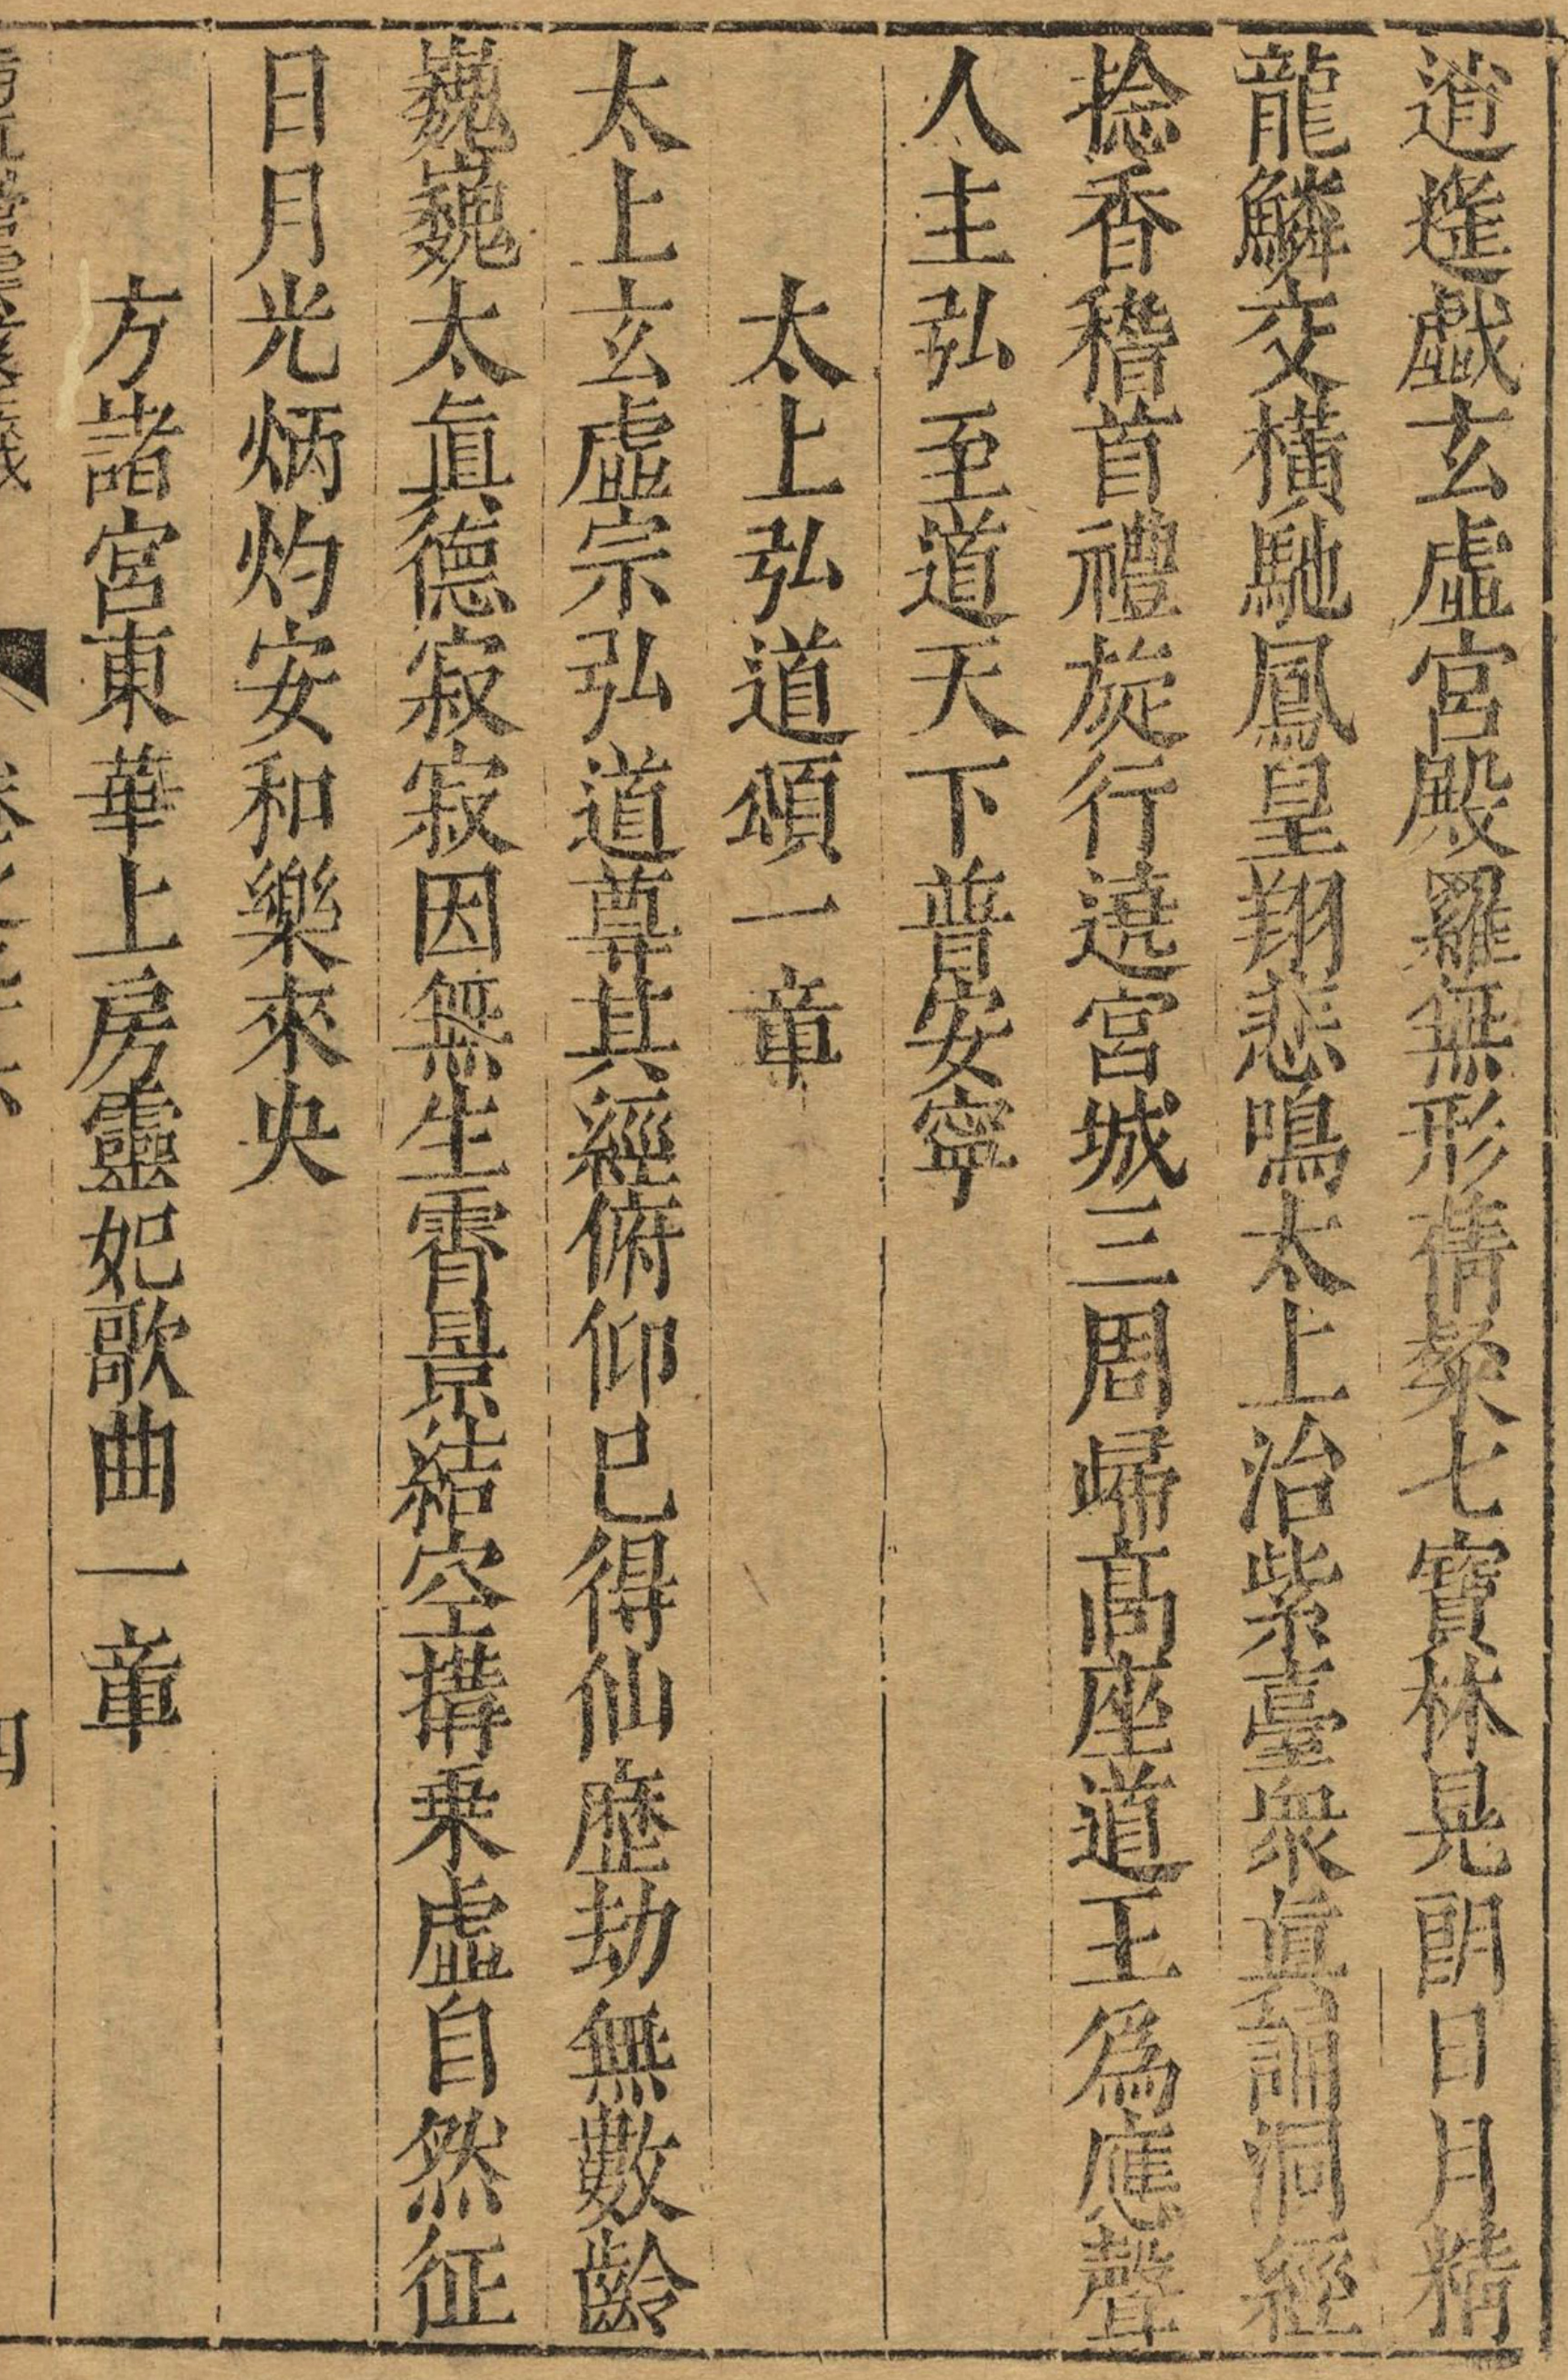 逍遥戯玄虛宮殿羅無形蒨粲七寶林晃朗日月精
龍鱗交橫馳鳳皇翔悲鳴太上治紫臺衆眞誦洞經
捻香稽首禮旋行遶宮城三周歸髙座道王爲應聲
人主弘至道天下普安寧
太上弘道頌一章
太上玄虛宗弘道尊其經俯仰已得仙歷劫無數齡
巍巍太眞德寂寂因無生霄景結空搆乗虛自然征
日月光炳灼安和樂來央
方諸宮東華上房靈妃歌曲一章